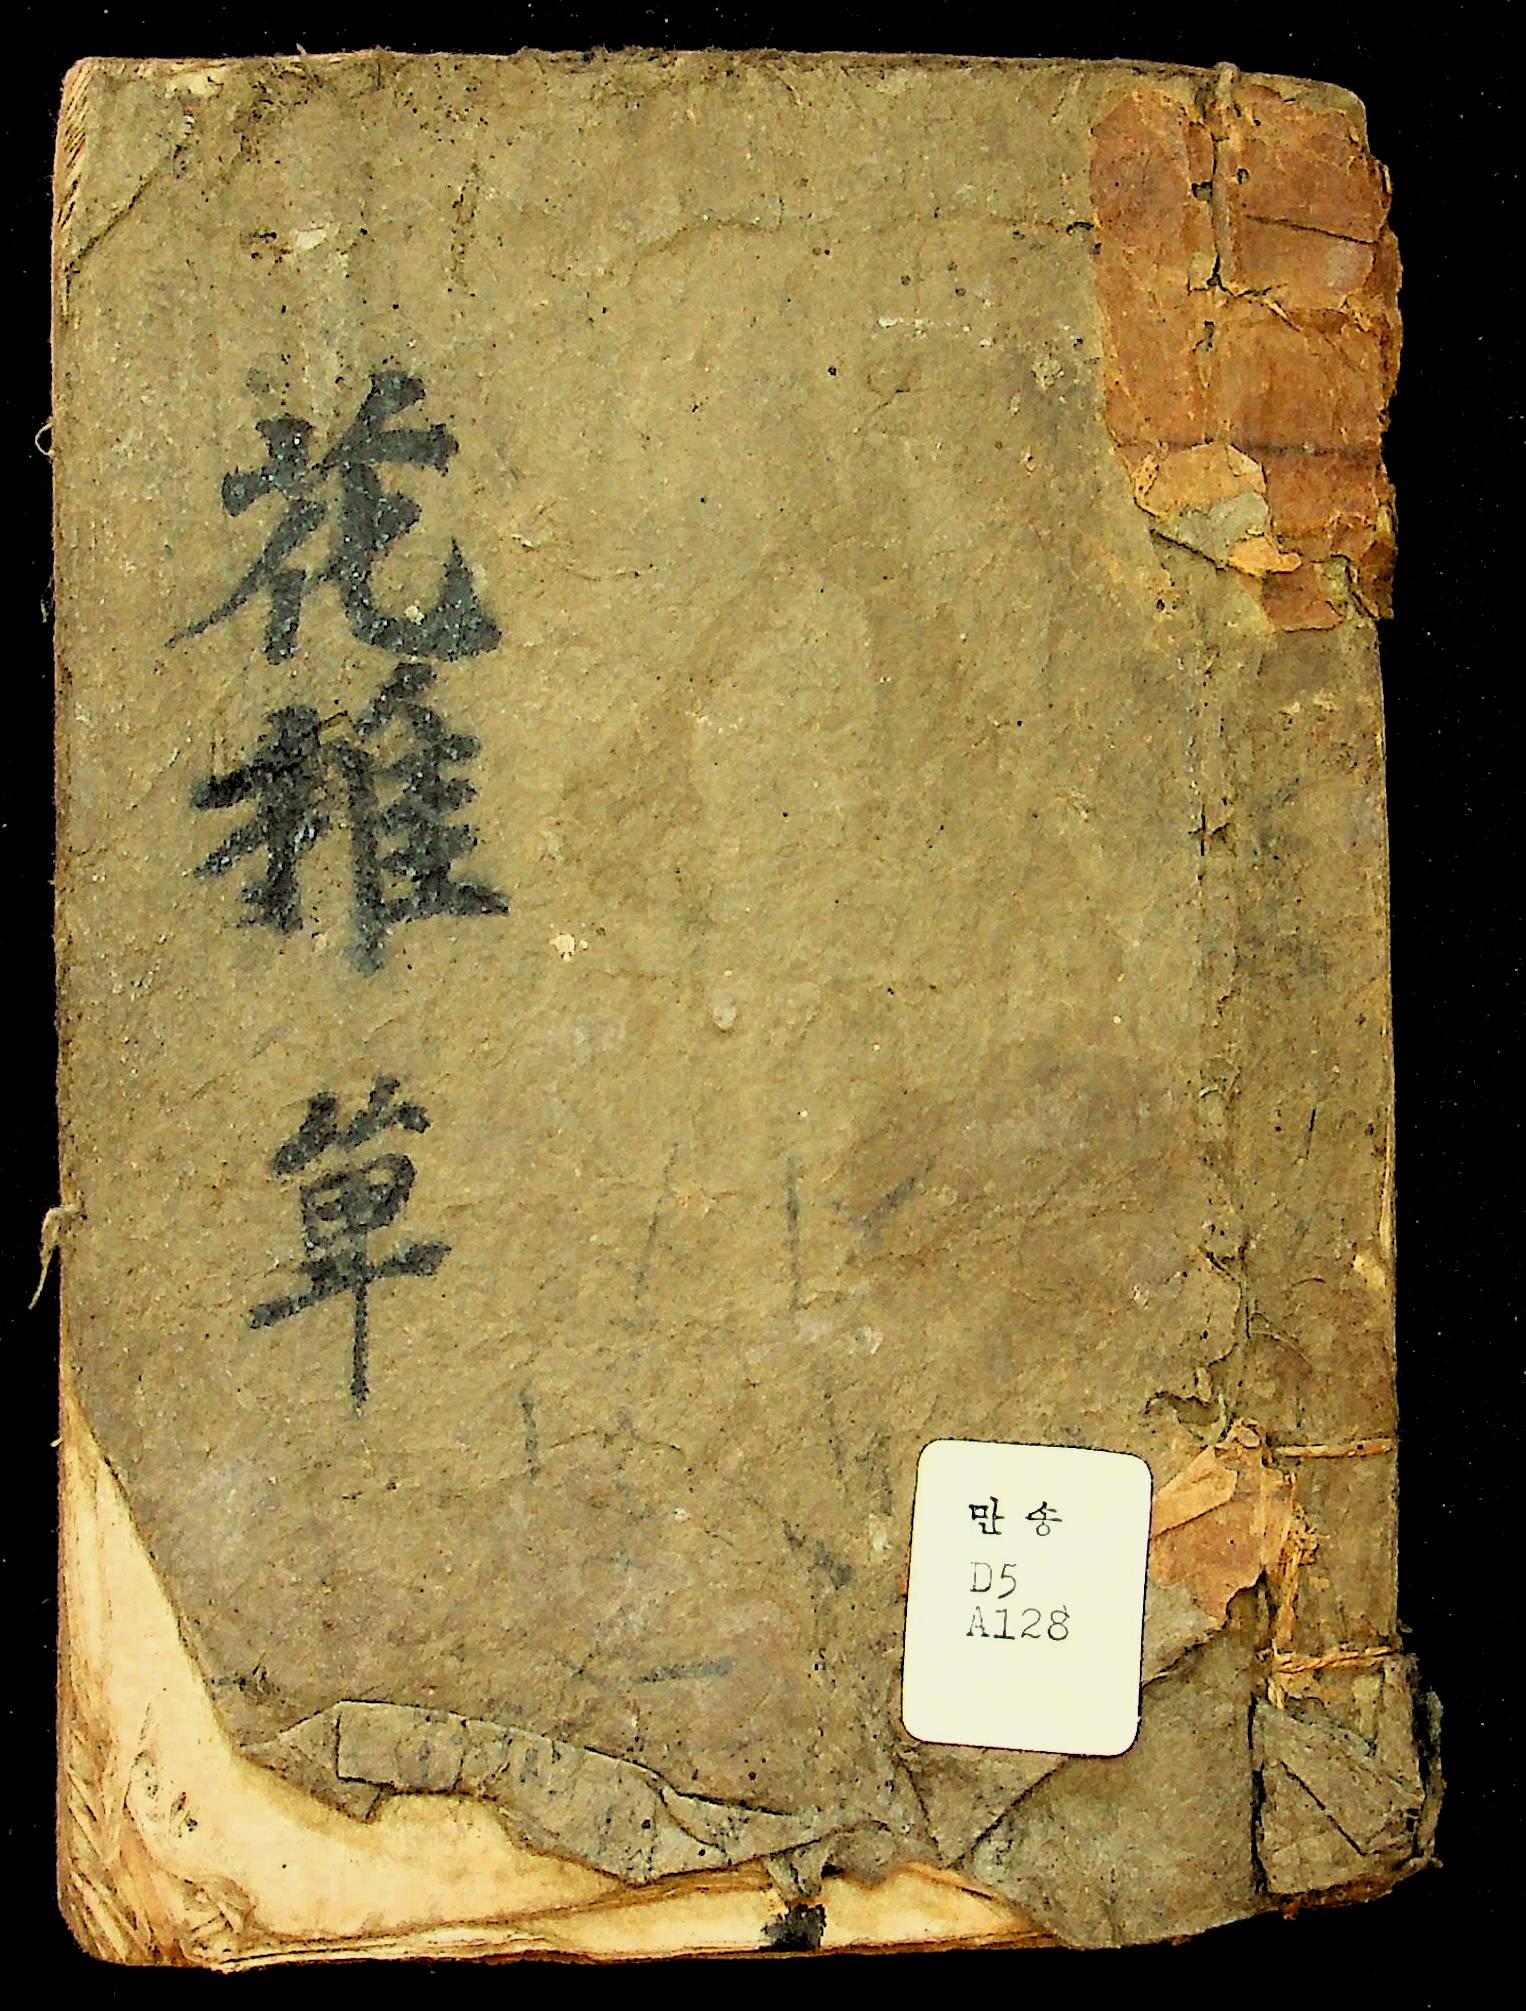 花稚 單
만송
D5
A128